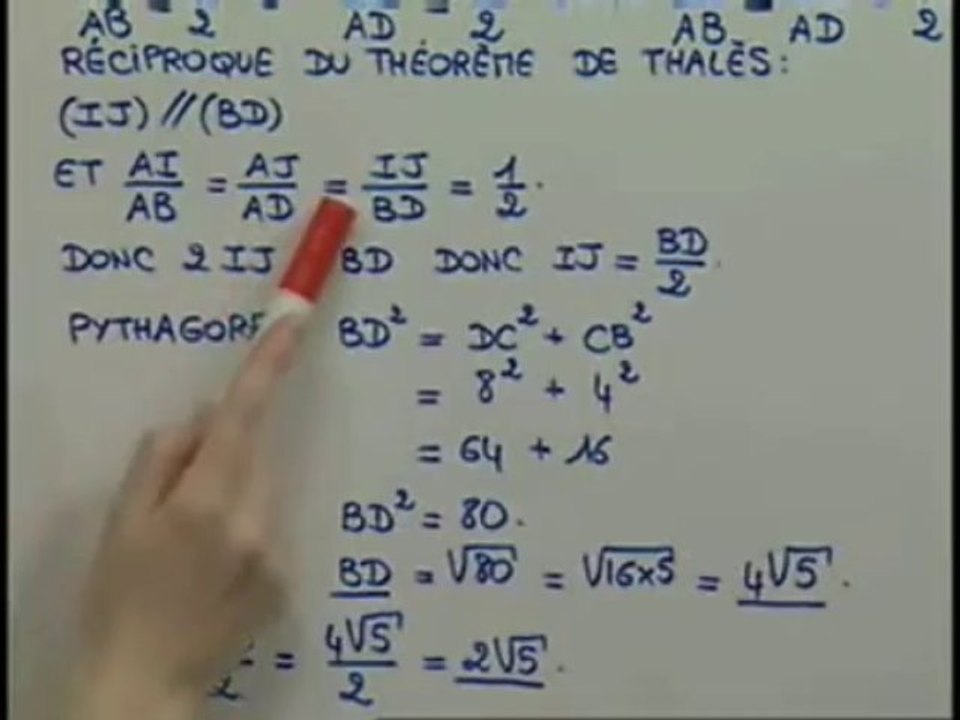 AB = 2 AD = 2 AB AD 2
RÉCIPROQUE DU THÉORÈME DE THALÈS :
(IJ) // (BD)
ET AI/AB = AJ/AD = IJ/BD = 1/2.
DONC 2 IJ BD DONC IJ = BD/2.
PYTHAGORE BD² = DC² + CB²
= 8² + 4²
= 64 + 16
BD² = 80.
BD = √80 = √16×5 = 4√5.
2 = 4√5/2 = 2√5.